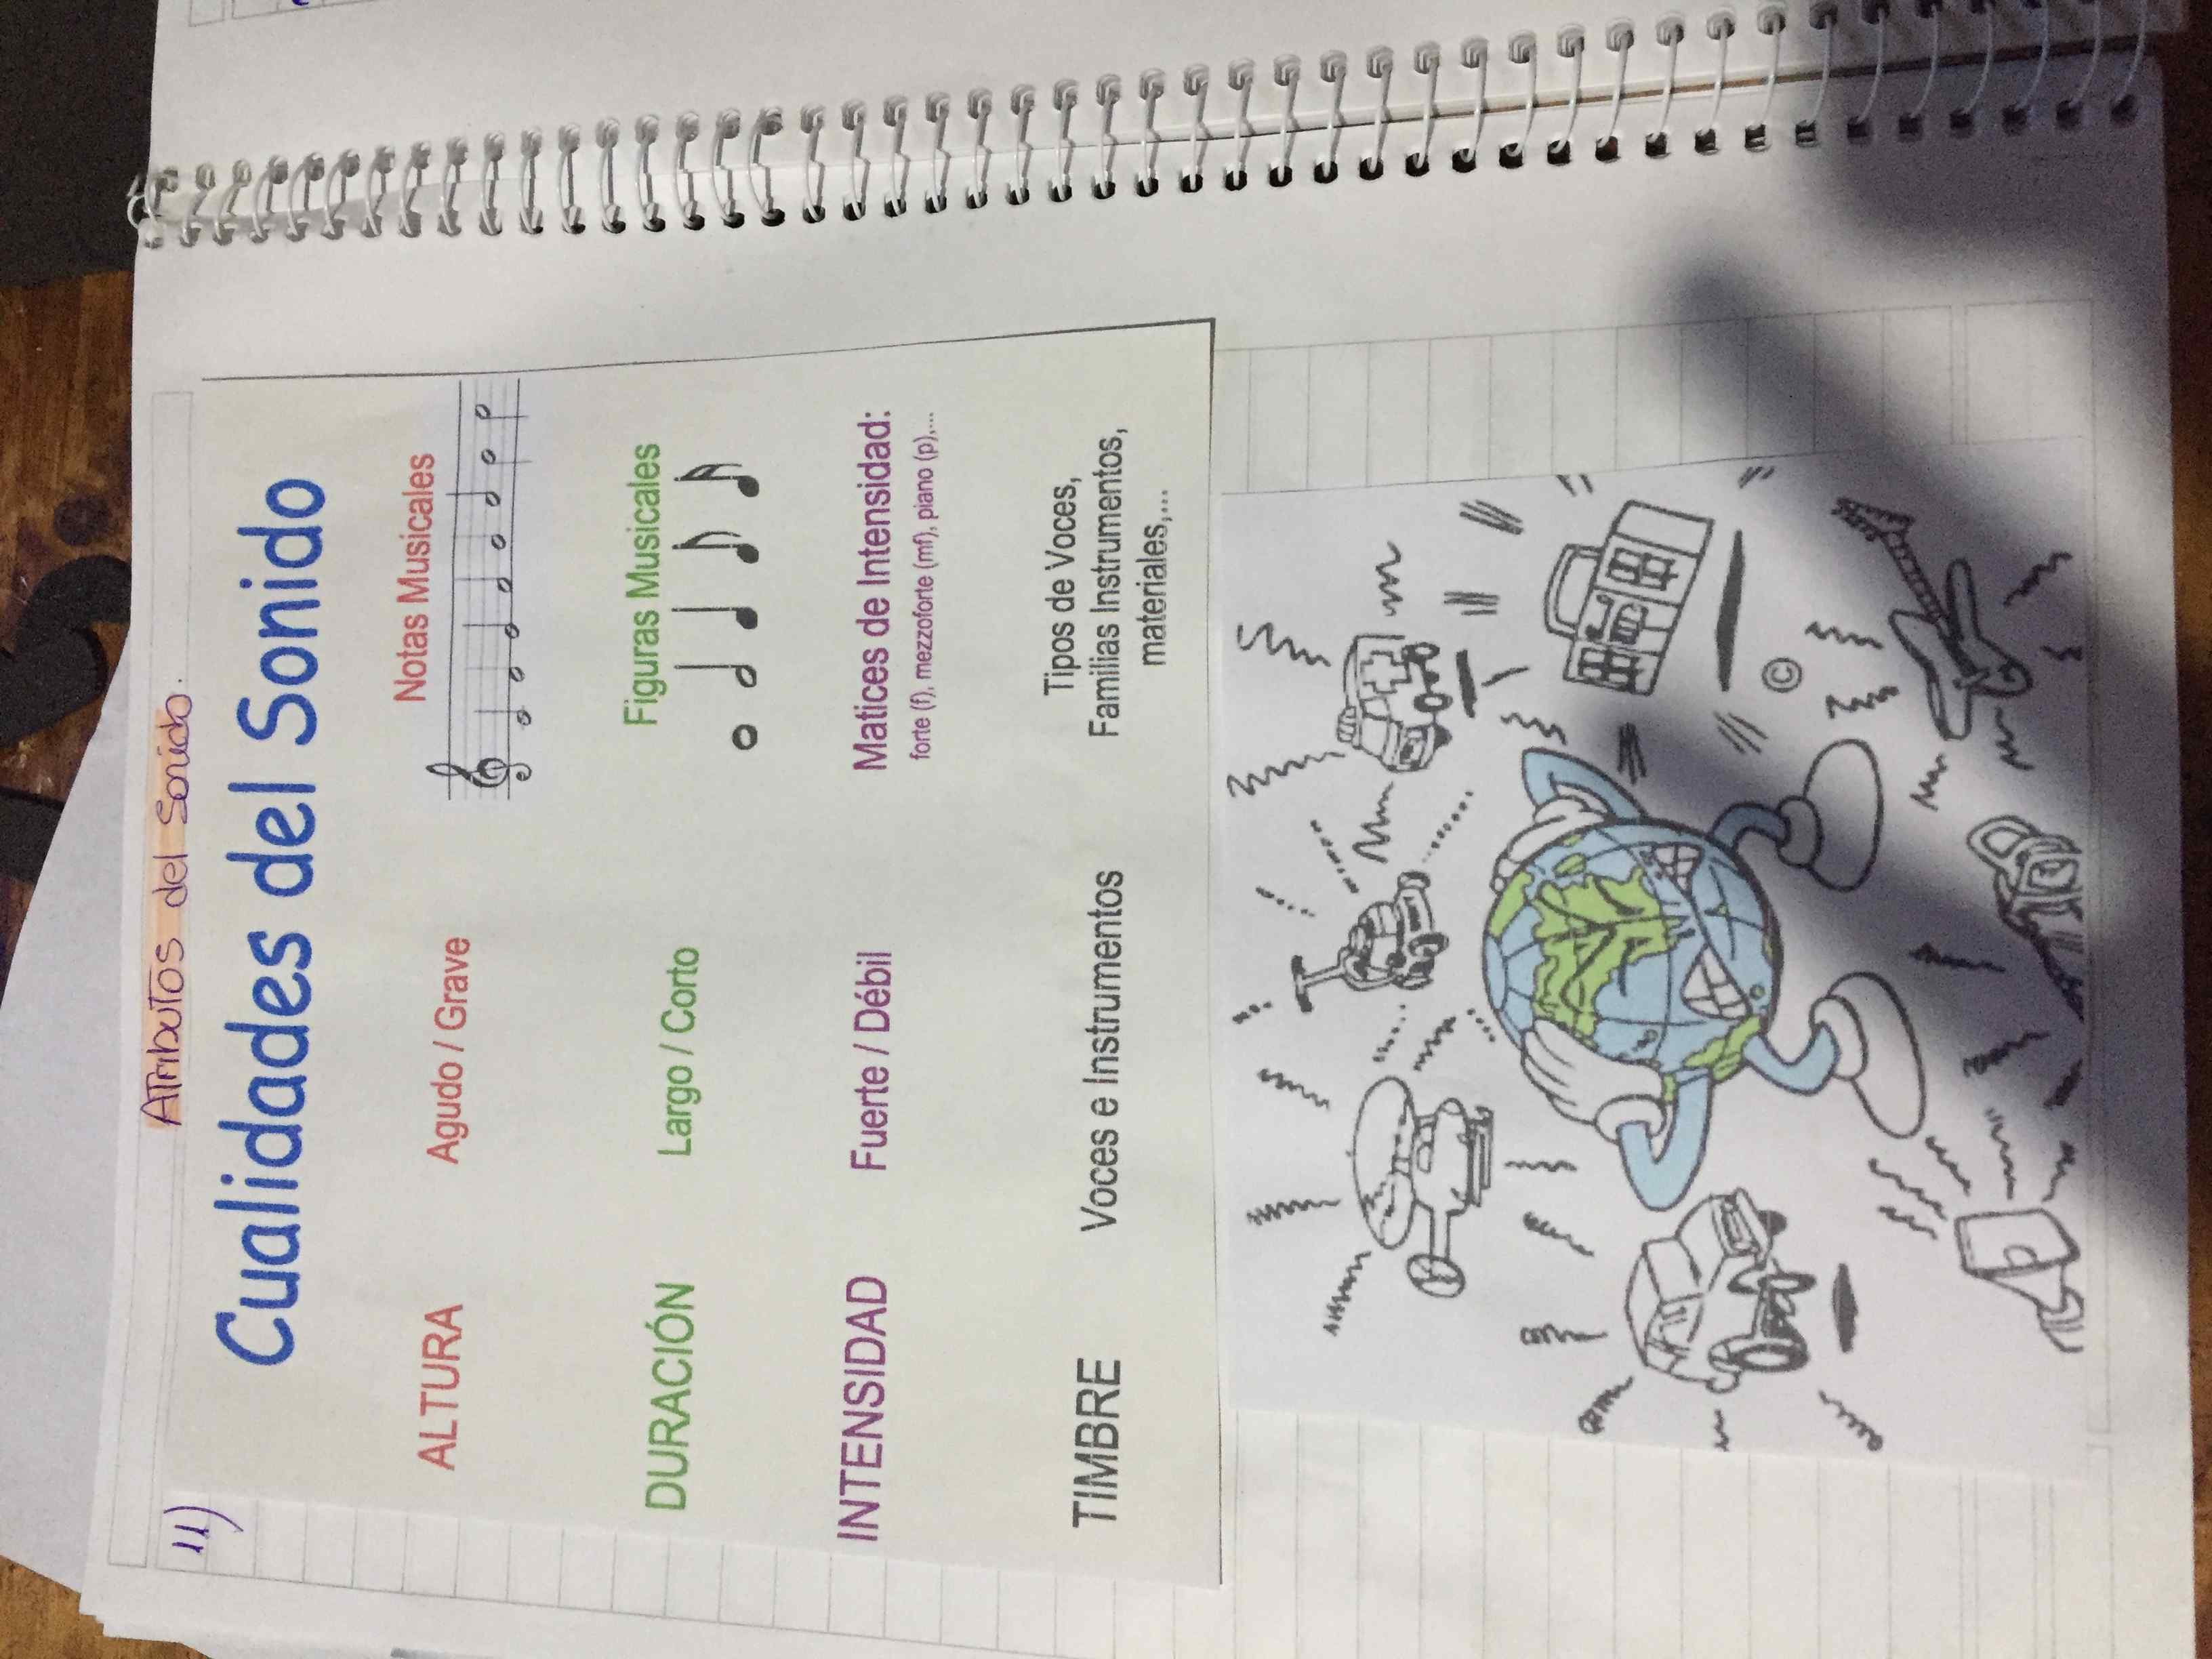 11)
Atributos del Sonido.
Cualidades del Sonido
ALTURA Agudo / Grave Notas Musicales
DURACIÓN Largo / Corto Figuras Musicales
INTENSIDAD Fuerte / Débil Matices de Intensidad:
forte (f), mezzoforte (mf), piano (p),...
TIMBRE Voces e Instrumentos Tipos de Voces,
Familias Instrumentos,
materiales,...
©